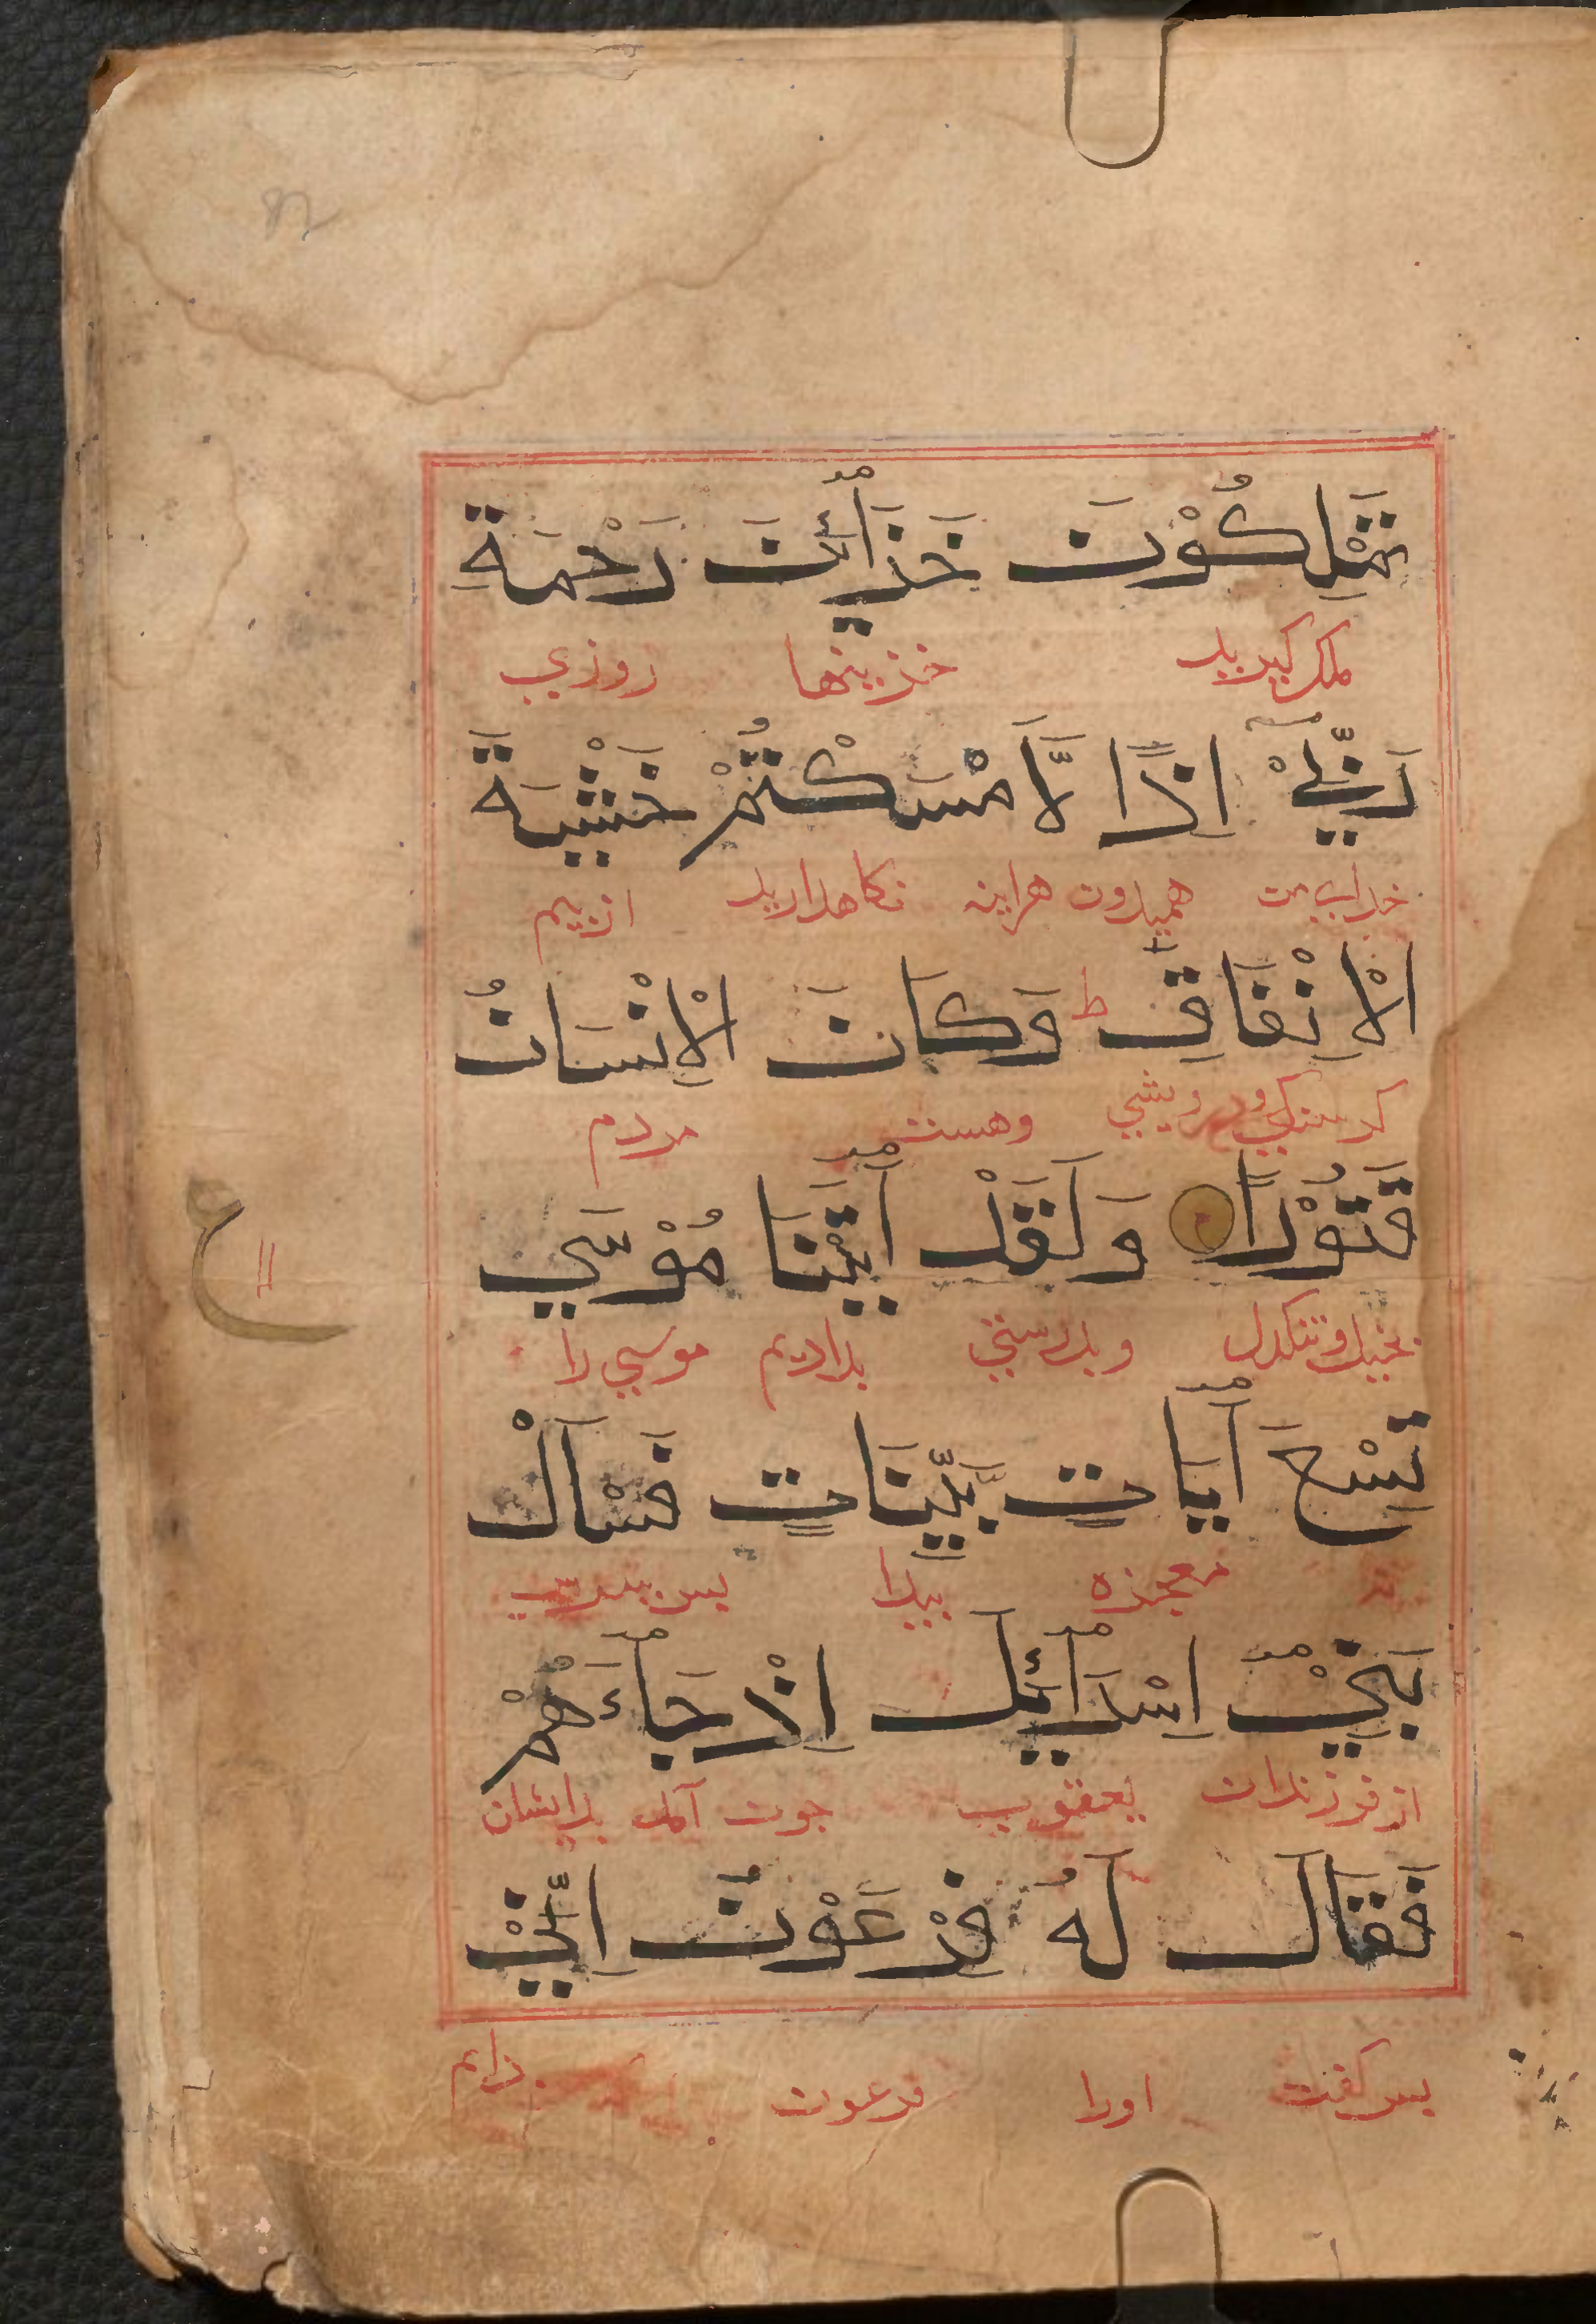 تَمْلِكُوْنَ خَزَآئِنَ رَحْمَةِ
ملك كيريد خزينها روزي
رَبِّيْ اِذًا لَّاَمْسَكْتُمْ خَشْيَةَ
خداي من هميدون هراينه نكاهداريد ازبيم
الْاِنْفَاقِ ط وَكَانَ الْاِنْسَانُ
ودرويشي وهست مردم
قَتُوْرًا وَلَقَدْ آتَيْنَا مُوْسَي
بخيل وتنكدل وبدرستي بداديم موسي را
تِسْعَ آيَاتٍ بَيِّنَاتٍ فَسْاَلْ
معجزه پيدا پس بپرس
بَنِيْ اِسْرَآئِيلَ اِذْ جَآءَهُمْ
از فرزندان يعقوب چون آمد بدايشان
فَقَالَ لَهُ فِرْعَوْنُ اِنِّيْ
پس كفت اورا فرعون
ع